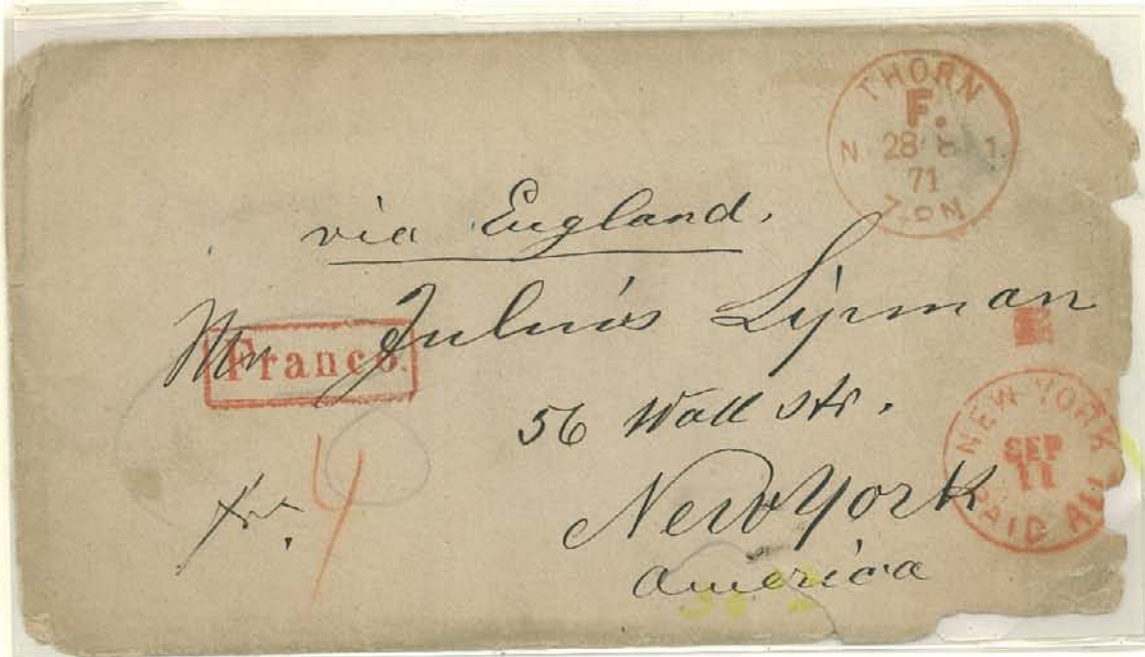 THORN
F.
N 28 8 1
71
7-8N
via England.
Mr Julius Lipman
Franco.
56 Wall str.
New York
America
frc. 4
NEW YORK
SEP
11
PAID ALL